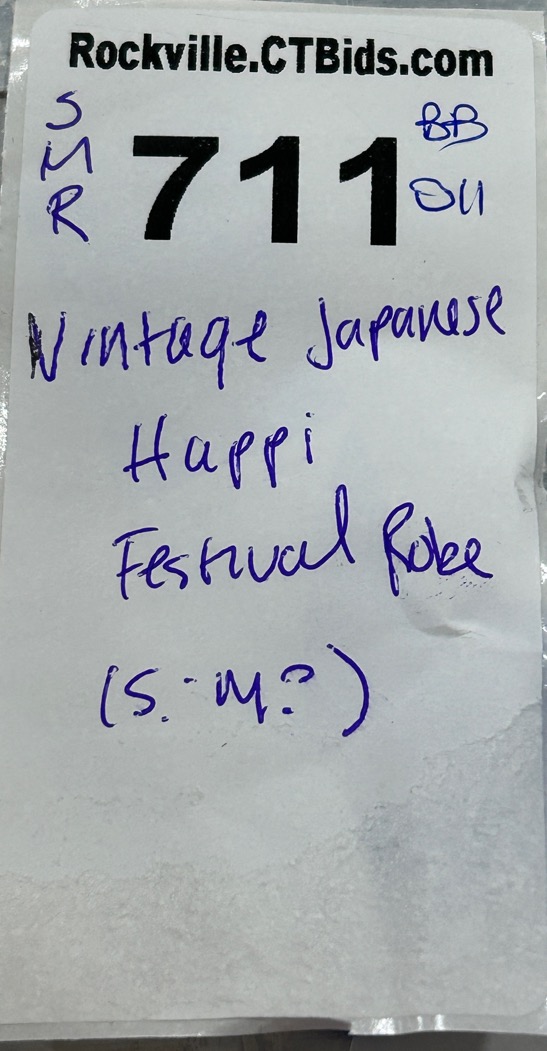 Rockville.CTBids.com
S
M
R
711
BB
Vintage Japanese
Happi
Festival Robe
(S.-M?)